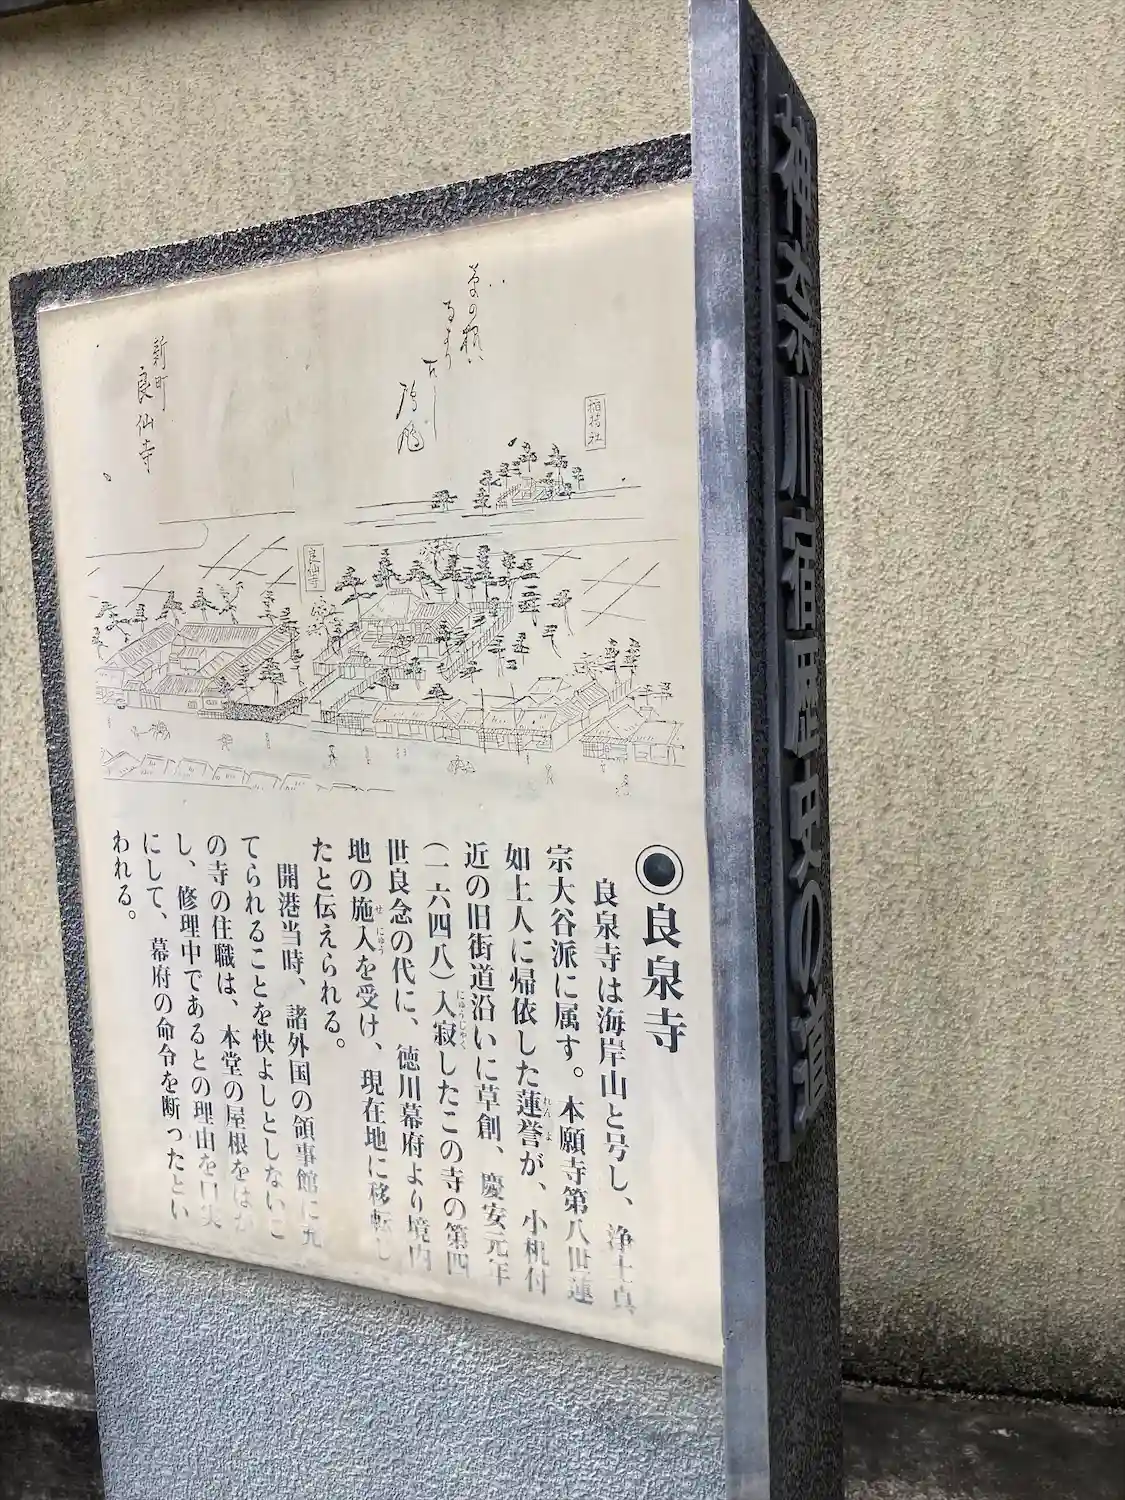 神奈川宿歴史の道
新町
良仙寺
稲荷社
良仙寺
良泉寺
良泉寺は海岸山と号し、浄土真
宗大谷派に属す。本願寺第八世蓮
如上人に帰依した蓮誉が、小机付
れんよ
近の旧街道沿いに草創、慶安元年
(一六四八)入寂したこの寺の第四
にゅうじゃく
世良念の代に、徳川幕府より境内
地の施入を受け、現在地に移転し
せにゅう
たと伝えられる。
開港当時、諸外国の領事館に充
てられることを快よしとしないこ
の寺の住職は、本堂の屋根をはが
し、修理中であるとの理由を口実
にして、幕府の命令を断ったとい
われる。